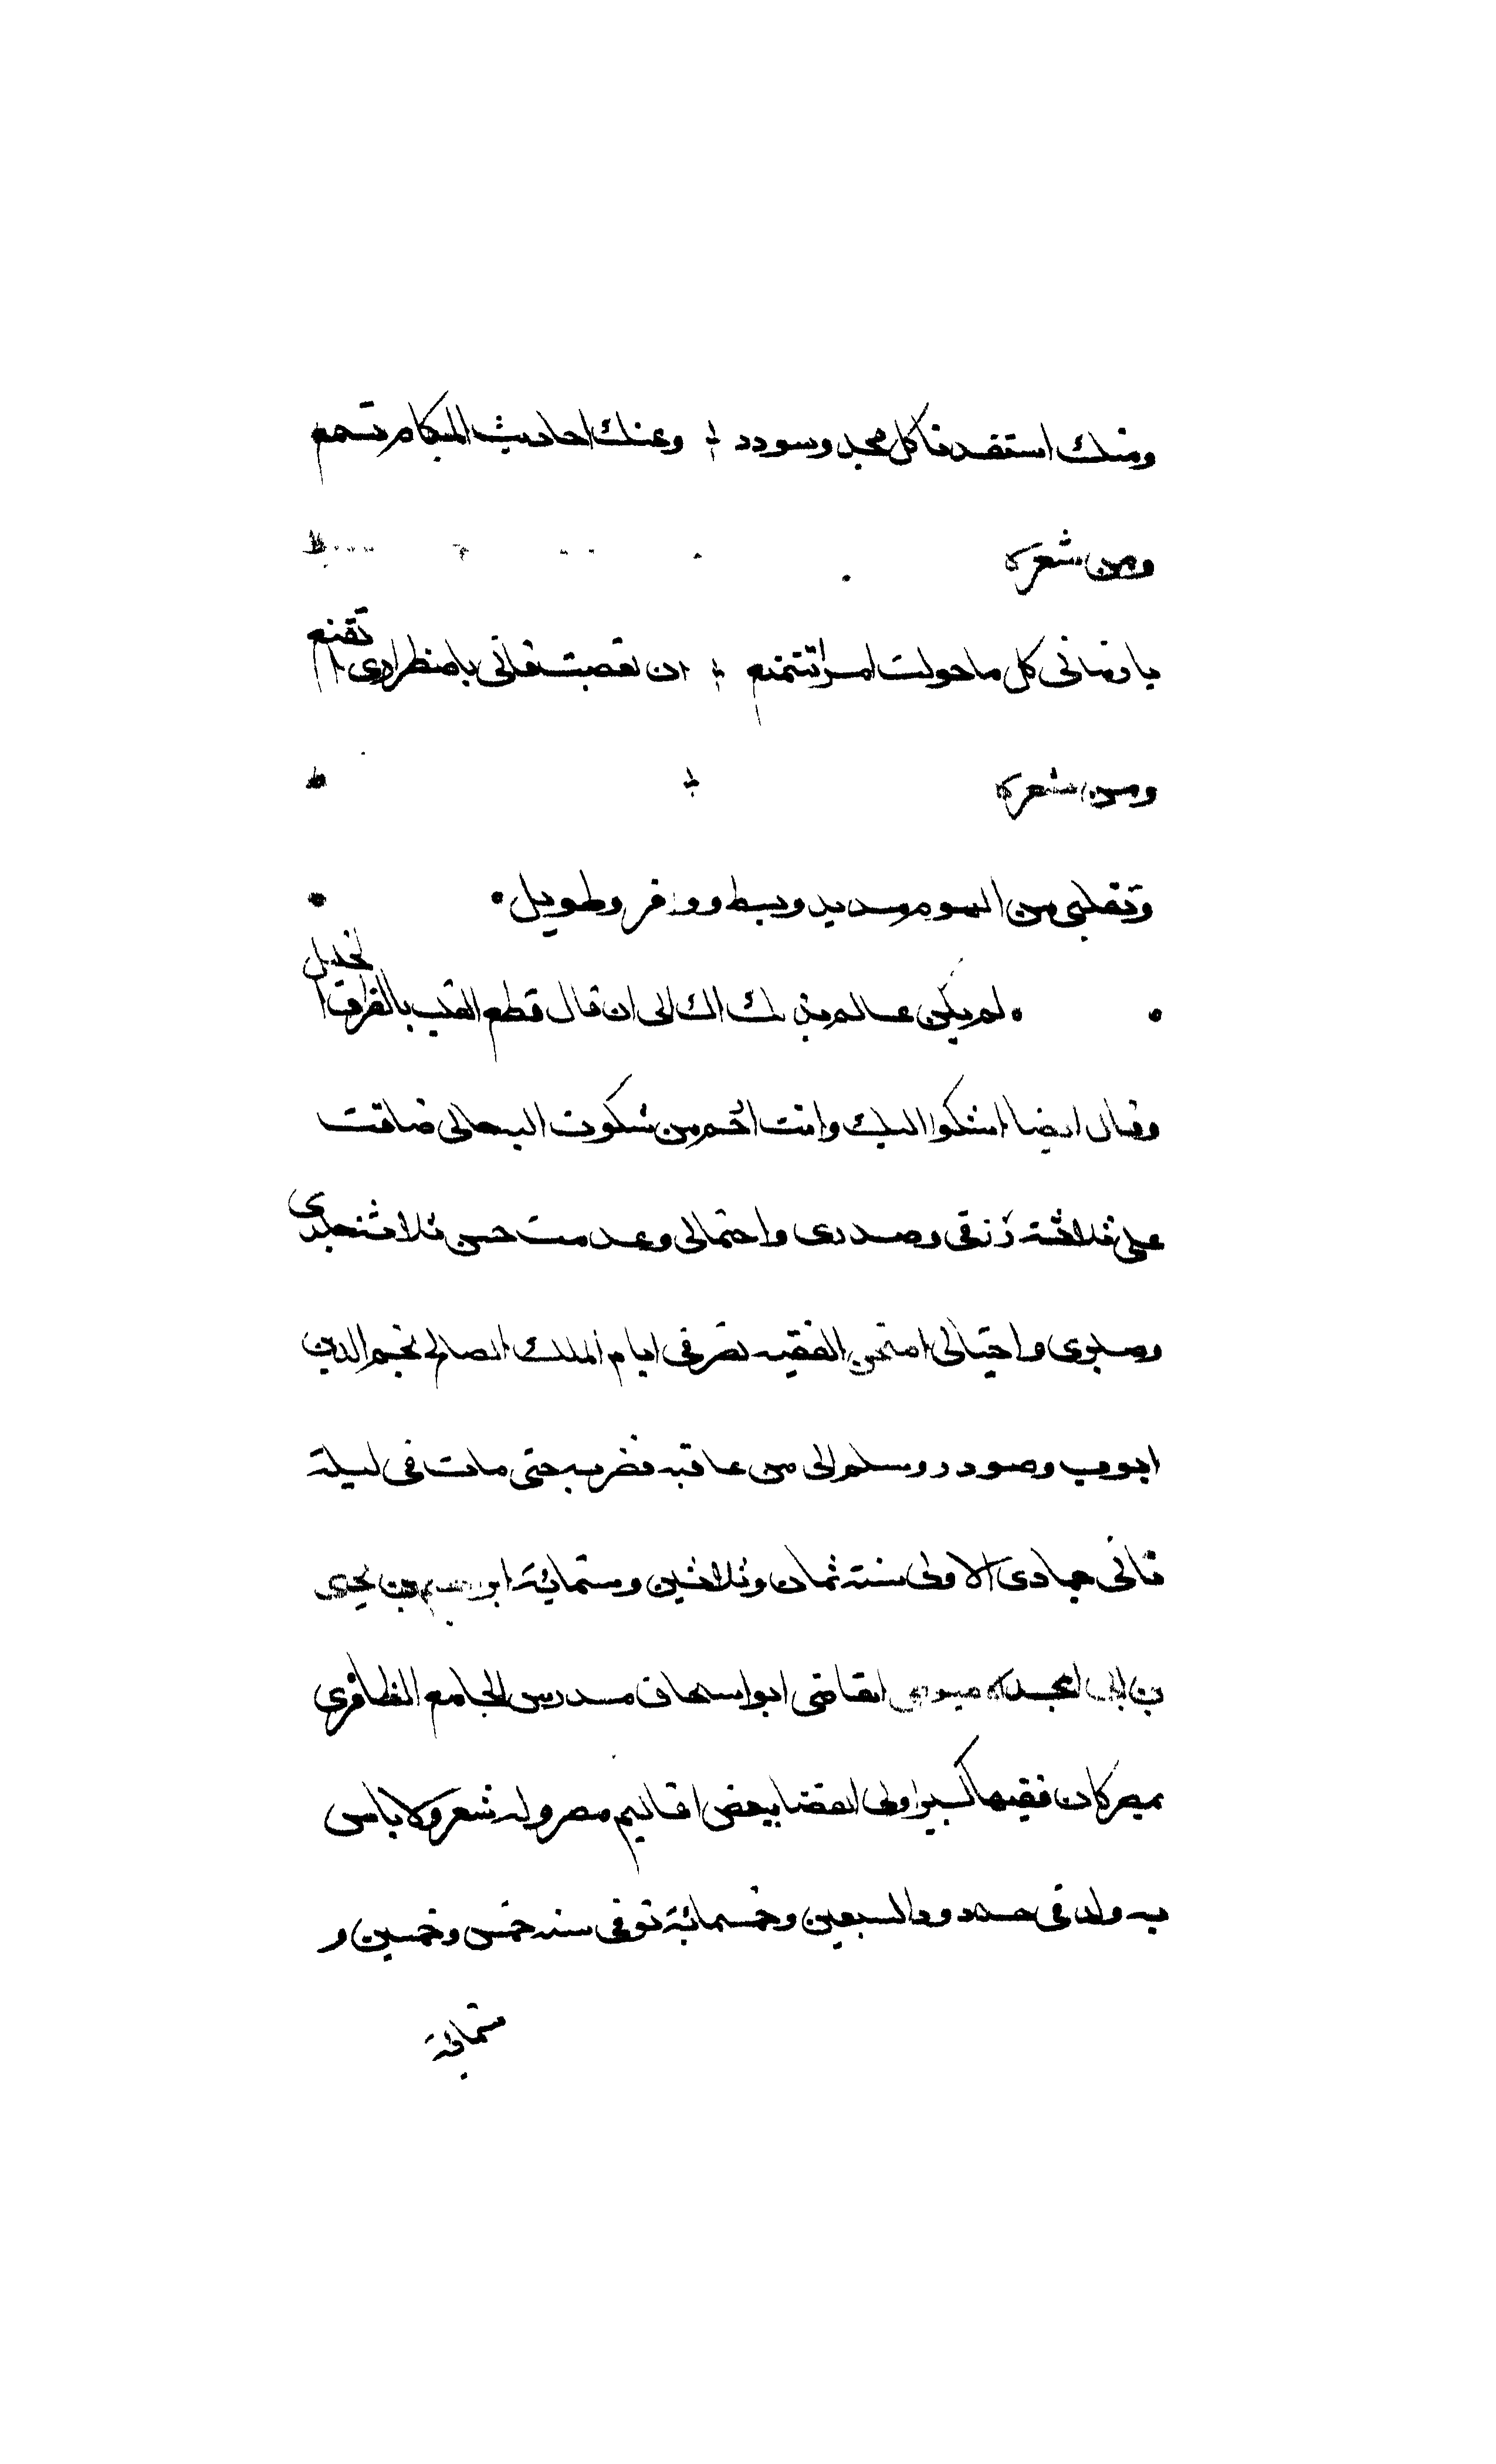 ومنك استفدنا كل مجد وسودد وعنك احاديث المكارم تسمع
ومن شعره
يا زماني كل ما حولت امرا تتمنع ان تعصبت فاني باصطراري اتقنع
ومن شعره
وتقلبي من الهموم مديد وبسيط ووافر وطويل
لم يكن عالم بذلك الى ان قال قطع القلب بالفراق الخليل
وقال ايضا اشكوا اليك وانت ارحم من شكوت اليه حالى ضاقت
على ثلاثة رزقى وصدرى واحتمالى وعدمت حسن ثلاث تجلدى
وصبرى واحتيالى امتحن الفقيه نصر فى ايام الملك الصالح نجم الدين
ايوب وصودر وسلم الى من عاقبه فضربه حتى مات فى ليلة
ثانى جمادى الاولى سنة ثمان وثلاثين وستمائة ابرهيم بن يحيى
بن ابى المجد القاضى ابو اسحاق مدرس الجامع الظافرى
بمصر كان فقيها كبيرا ولى القضا ببعض اقاليم مصر وله شعر ولا باس
به ولد فى حدود السبعين وخمسمائة توفى سنه خمس وخمسين و
ستمائة